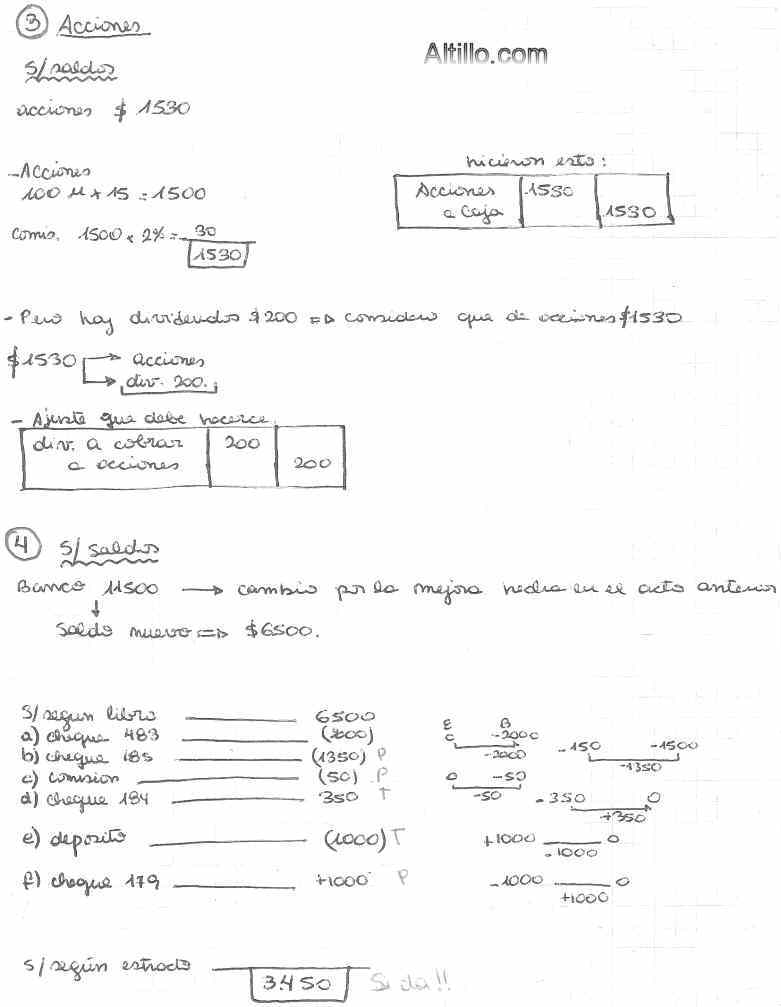 ③ Acciones
Altillo.com
S/ saldos
acciones $ 1530
- Acciones
100 u x 15 = 1500
Comis. 1500 x 2% = 30
1530
hicieron esto:
Acciones 1530
a Caja 1530
- Pero hay dividendos $200 => considero que de acciones $1530
$1530 → acciones
→ div. 200.
- Ajuste que debe hacerce
div. a cobrar 200
a acciones 200
④ S/ saldos
Banco 11500 → cambio por la mejora hecha en el acto anterior
↓
Saldo nuevo => $6500.
S/ según libro 6500
a) cheque 483 (2000)
b) cheque 185 (1350) P
c) comision (50) P
d) cheque 184 350 T
e) deposito (1000) T
f) cheque 179 +1000 P
E B
0 -2000
-2000
-150 -1500
-1350
0 -50
-50
-350 0
+350
+1000 0
-1000
-1000 0
+1000
S/ según extracto 3450 Si da!!